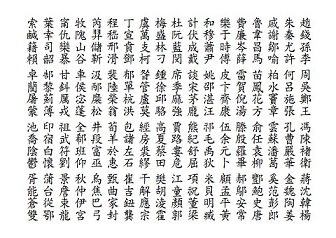 趙錢孫李　周吳鄭王　馮陳褚衛　蔣沈韓楊
朱秦尤許　何呂施張　孔曹嚴華　金魏陶姜
戚謝鄒喻　柏水竇章　雲蘇潘葛　奚范彭郎
魯韋昌馬　苗鳳花方　俞任袁柳　酆鮑史唐
費廉岑薛　雷賀倪湯　滕殷羅畢　郝鄔安常
樂于時傅　皮卞齊康　伍余元卜　顧孟平黃
和穆蕭尹　姚邵湛汪　祁毛禹狄　米貝明臧
計伏成戴　談宋茅龐　熊紀舒屈　項祝董梁
杜阮藍閔　席季麻強　賈路婁危　江童顏郭
梅盛林刁　鍾徐邱駱　高夏蔡田　樊胡凌霍
虞萬支柯　昝管盧莫　經房裘繆　干解應宗
丁宣賁鄧　郁單杭洪　包諸左石　崔吉鈕龔
程嵇邢滑　裴陸榮翁　荀羊於惠　甄曲家封
芮羿儲靳　汲邴糜松　井段富巫　烏焦巴弓
牧隗山谷　車侯宓蓬　全郗班仰　秋仲伊宮
甯仇欒暴　甘鈄厲戎　祖武符劉　景詹束龍
葉幸司韶　郜黎薊薄　印宿白懷　蒲台從鄂
索鹹籍賴　卓藺屠蒙　池喬陰鬱　胥能蒼雙